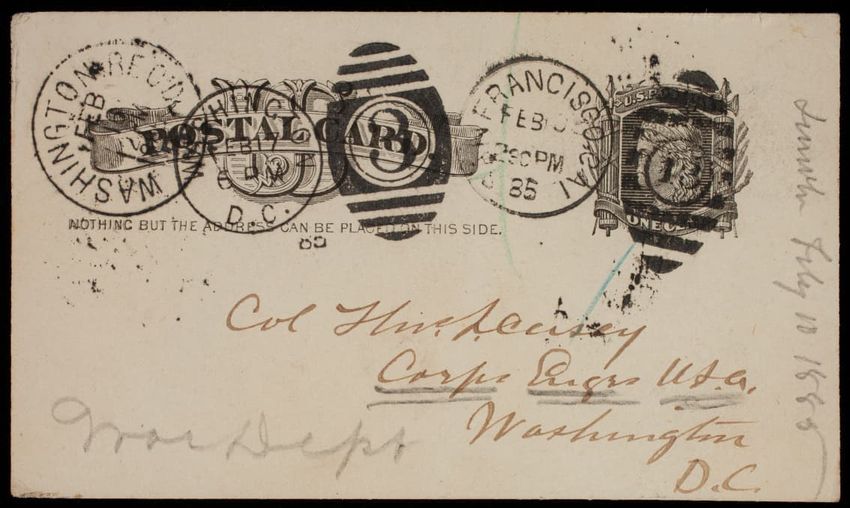 WASHINGTON REC'D.
FEB
WASHINGTON
FEB 17
6 PM
D.C.
85
3
FRANCISCO CAL
FEB
30 PM
85
U.S. POSTAL
12
ONE CENT
POSTAL CARD.
NOTHING BUT THE ADDRESS CAN BE PLACED ON THIS SIDE.
Col Thos. L. Casey
Corps Engrs U.S.A.
Washington
D.C.
War Dept
Feby 10 1885